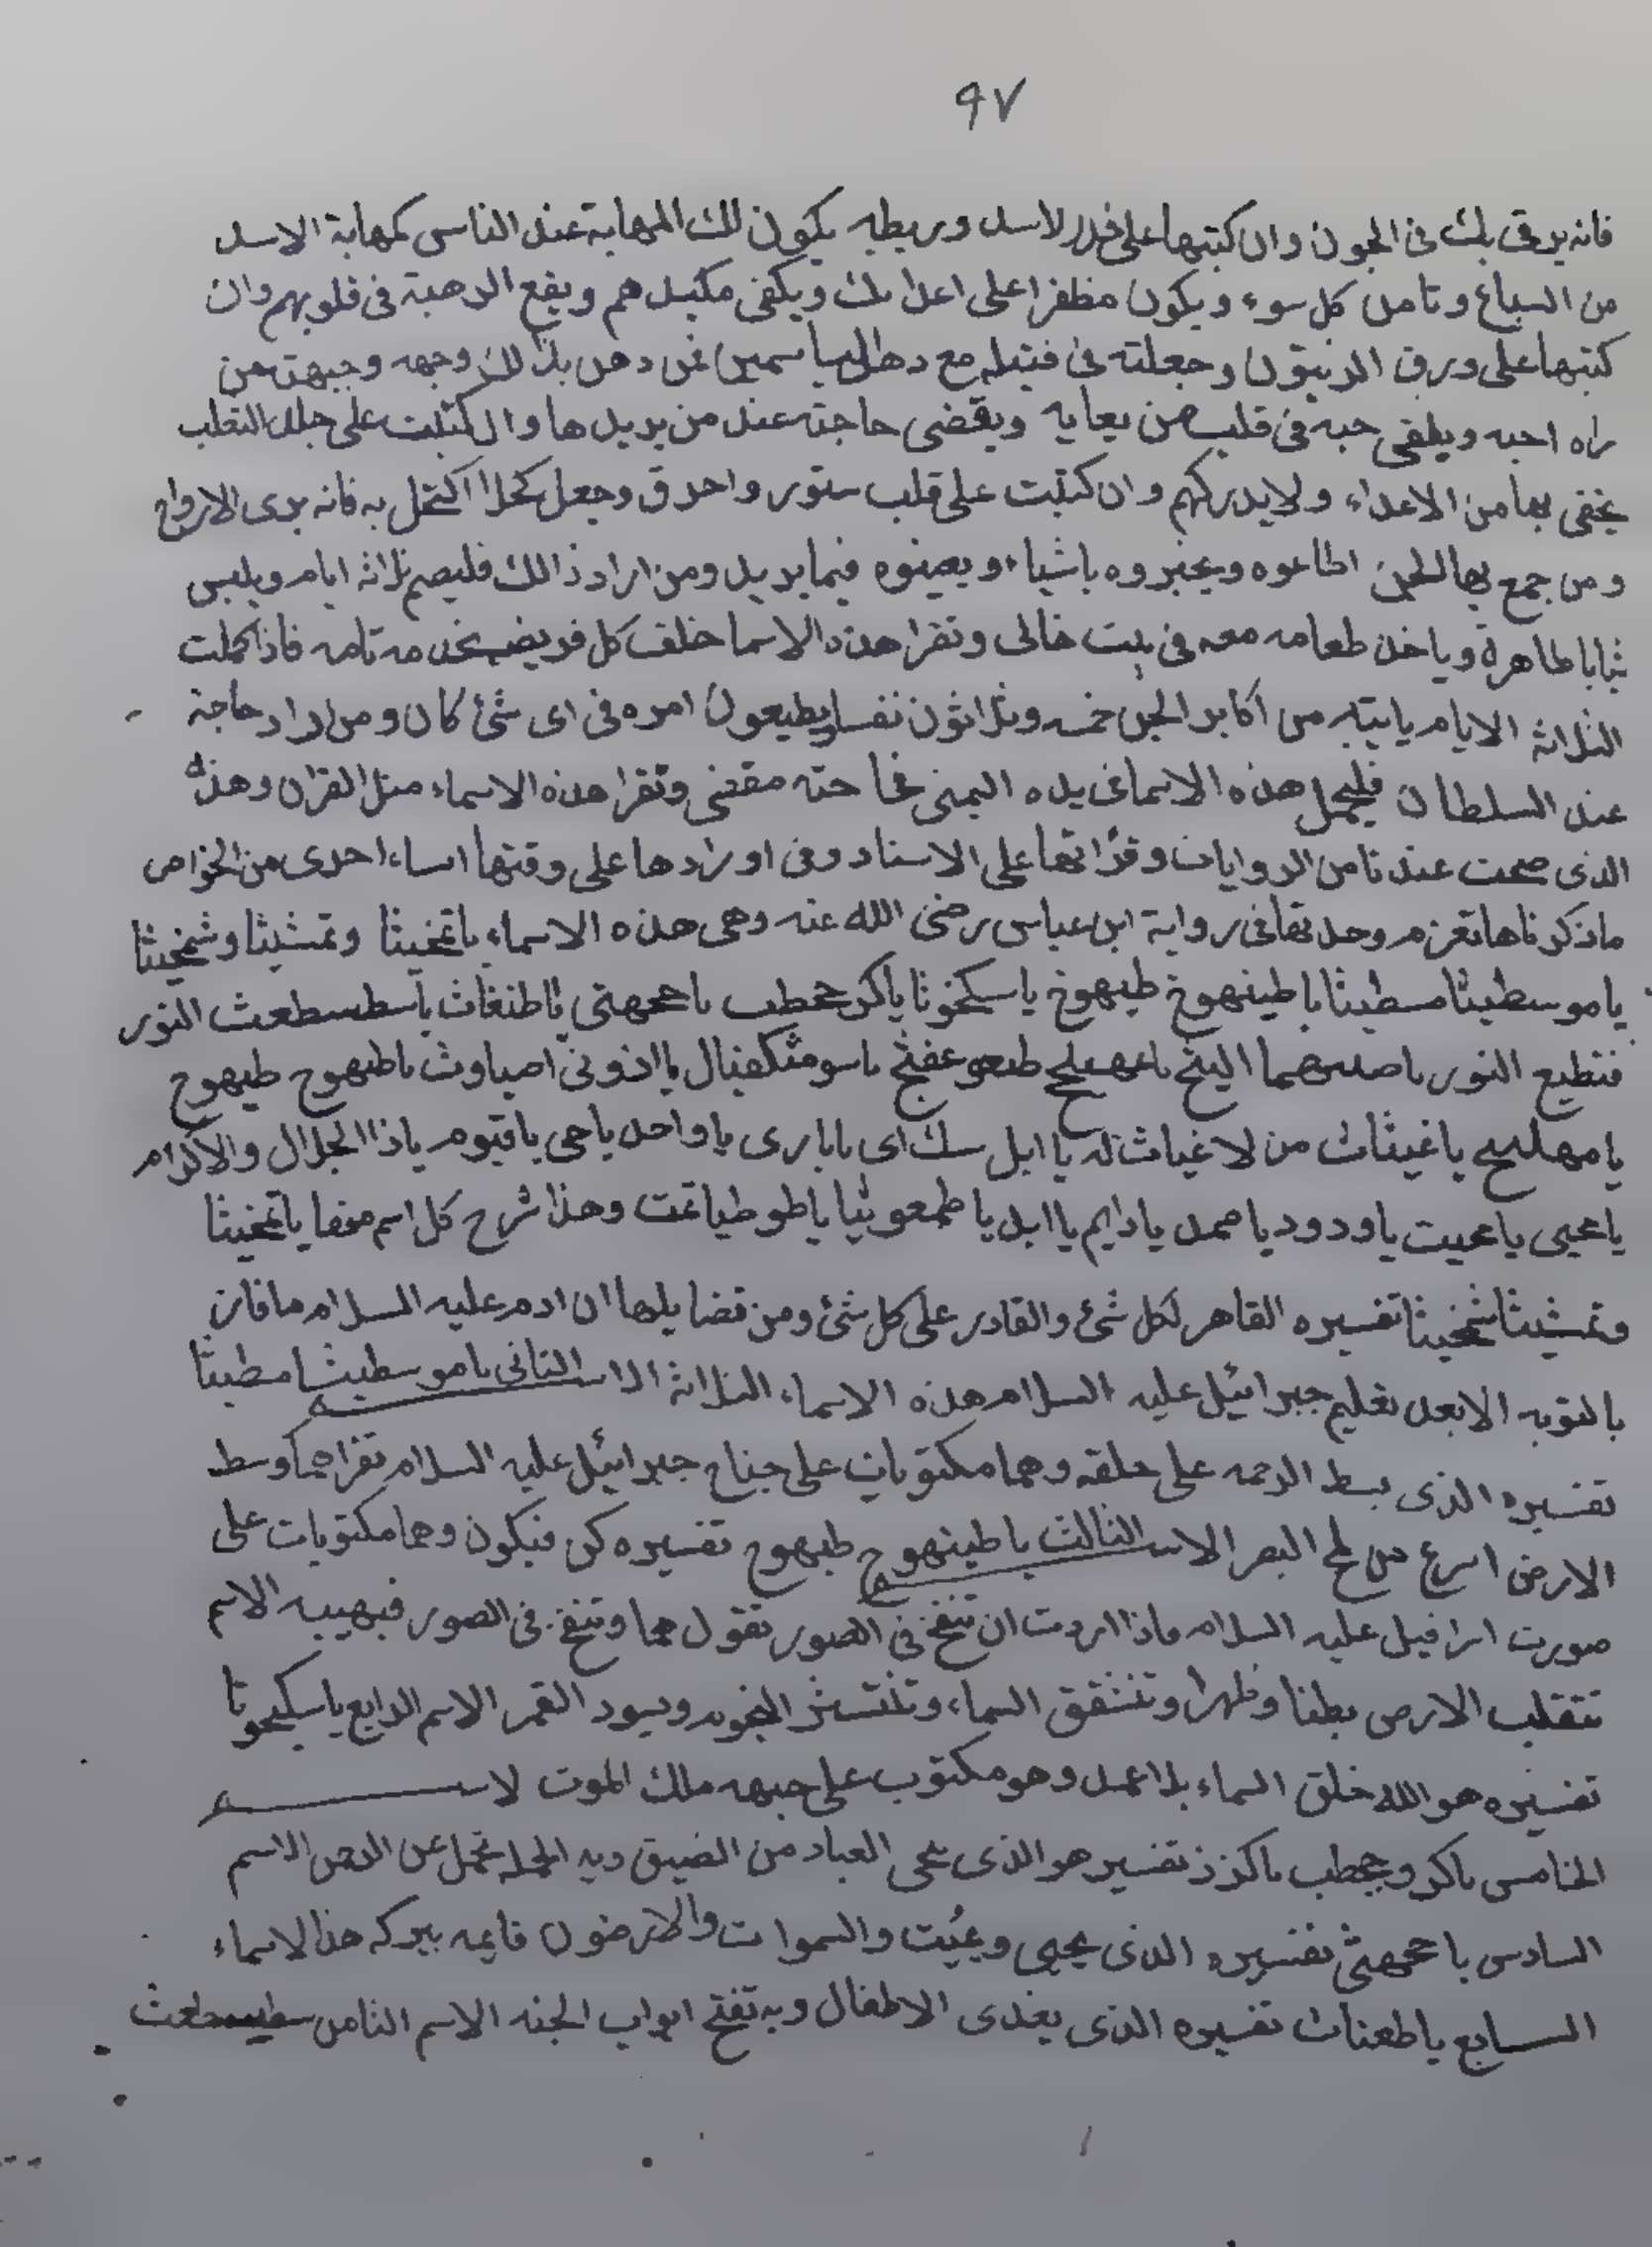 ٩٧
فانه يرقى بك فى الجون وان كتبتها على جلد الاسد وربطه يكون لك المهابة عند الناس كمهابة الاسد
من السباع وتامن كل سوء ويكون مظفرا على اعدايك ويكفى مكيدهم ويقع الرهبة فى قلوبهم وان
كتبتها على ورق الزيتون وجعلته فى فتيله مع دهن الياسمين فمن دهن بذلك وجهه وجبهته من
راه احبه ويلقى حبه فى قلب من يعايه ويقضى حاجته عند من يريدها وان كتبت على جلد الثعلب
يخفى بها من الاعداء ولا يدركهم وان كتبت على قلب سنور واحرق وجعل كحلا اكتحل به فانه يرى الارواح
ومن جمع بها الجن اطاعوه ويخبروه باشياء ويعينوه فيما يريد ومن اراد ذالك فليصم ثلاثة ايام ويلبس
ثيابا طاهرة وياخذ طعامه معه فى بيت خالى وتقرا هذه الاسما خلف كل فريضه تامه فاذا كملت
الثلاثة الايام ياتيه من اكابر الجن خمسه وثلاثون نفسا يطيعون امره فى اى شئ كان ومن اراد حاجة
عند السلطان فليحمل هذه الاسما فى يده اليمنى فحاحته مقضى وتقرا هذه الاسماء مثل القران وهذه
الذى صحت عندنا من الروايات وقرأتها على الاسناد وفى اورادها على وقتها اساء احدى من الخواص
ماذكرناها رواية ابن عباس رضى الله عنه وهى هذه الاسماء ياتمخيثا وتمشيثا وشمخيثا
يا موسطيثا مسطيثا يا طينهوج طيهوج ياسكخوثا ياكر جحطب يا ججهتى ياطنغاث ياسطسطعث النور
فتطيع النور طعو عفنج يااذونى اصباوث ياطهوج طيهوج
يا مهليج ياغيثاث من لا غياث له يا ابل سك اى يابارى يا واحد ياحى ياقيوم ياذا الجلال والاكرام
يا محيى يا مميت ياودود يا صمد يا دايم يا ابد يا طمعوثيا ياطوطيا تمت وهذا شرح كل اسم ياتمخيثا
وتمشيثا شمخيثا تفسيره القاهر لكل شئ والقادر على كل شئ ومن فضايلها ان ادم عليه السلام مافاز
بالتوبه الا بعد تعليم جبرائيل عليه السلام هذه الاسماء الثلاثة الاسم الثانى يا موسطيثا مطيثا
تفسيره الذى بسط الرحمه على خلقه وهما مكتوبات على جناح جبرائيل عليه السلام تقراهما وسط
الارض اسرع من لمح البصر الاسم الثالث يا طينهوج طيهوج تفسيره كن فيكون وهما مكتوبات على
صورت اسرافيل عليه السلام فاذا اردت ان تنفخ فى الصور تقول هما وتنفخ فى الصور فبهيبه الاسم
تتقلب الارض بطنا وظهرا وتنشقق السماء وتنتشر النجوم ويسود القمر الاسم الرابع ياسكيحوثا
تفسيره هو الله خلق السماء بلا عمد وهو مكتوب على جبهه ملك الموت الاسم
الخامس ياكر وجحطب ياكرز تفسير هو الذى ينجى العباد من الضيق وبه الاسم
السادس يا ججهثى تفسيره الذى يحيى ويميت والسموات والارضون قايمه ببركه هذا الاسماء
السابع ياطعناث تفسيره الذى يغذى الاطفال وبه تفتح ابواب الجنه الاسم الثامن سطيسطعث